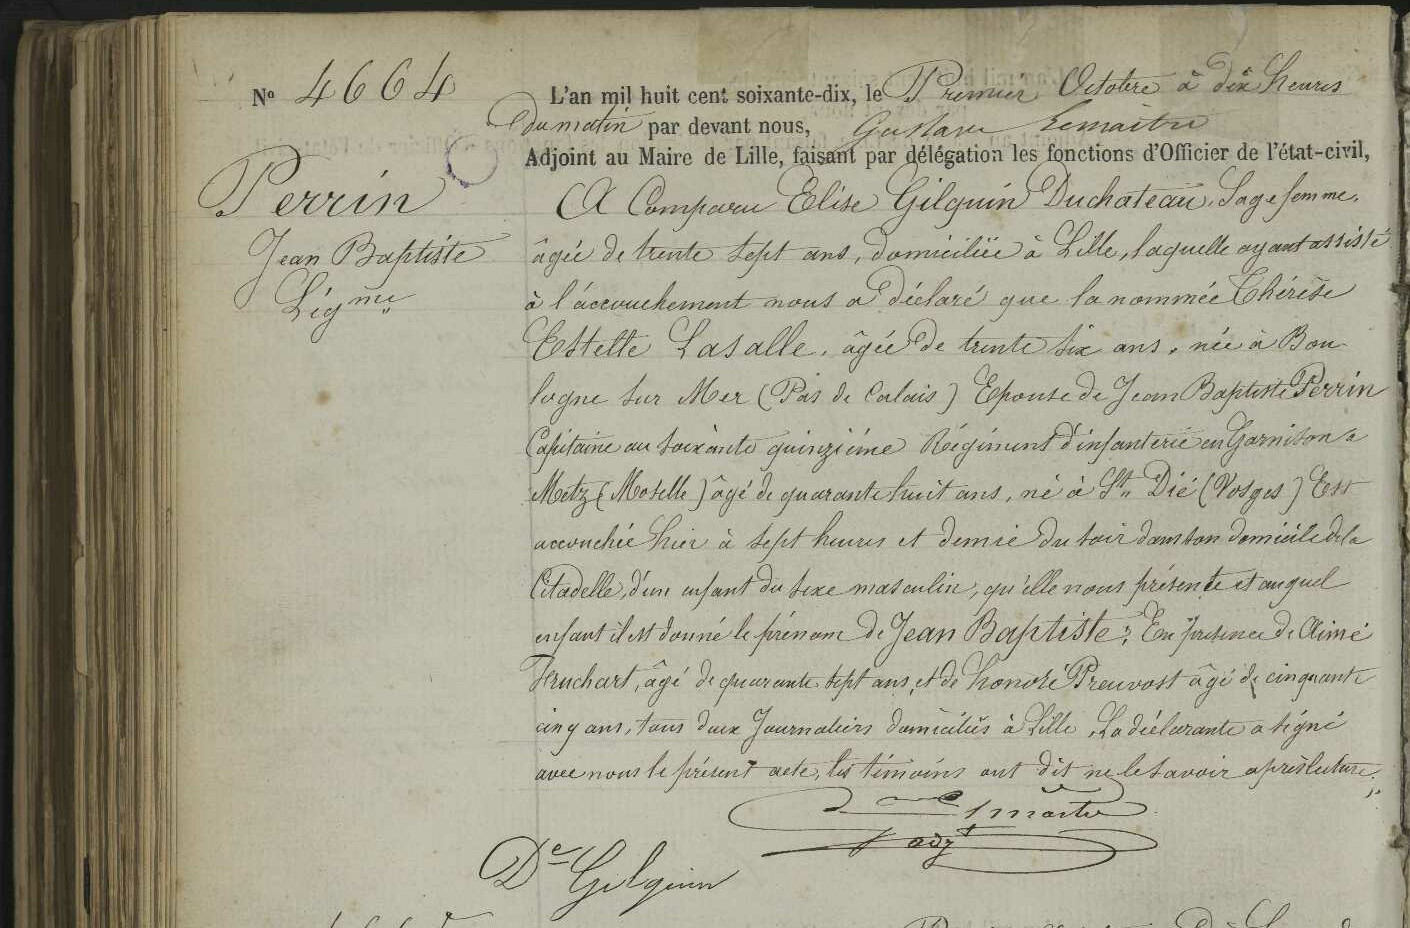 No 4664
L'an mil huit cent soixante-dix, le Premier Octobre à dix heures
du matin par devant nous, Gustave Lemaitre
Adjoint au Maire de Lille, faisant par délégation les fonctions d'Officier de l'état-civil,
Perrin
Jean Baptiste
Légme
A Comparu Elise Gilquin Duchateau, Sage femme,
âgée de trente sept ans, domiciliée à Lille, laquelle ayant assisté
à l'accouchement nous a déclaré que la nommée Thérèse
Estelle Lasalle, âgée de trente six ans, née à Bou
logne sur Mer (Pas de Calais) Epouse de Jean Baptiste Perrin
Capitaine au soixante quinzième Régiment d'infanterie en Garnison a
Metz (Moselle) âgé de quarante huit ans, né à St Dié (Vosges) Est
accouchée hier à sept heures et demie du soir dans son domicile de la
Citadelle, d'un enfant du sexe masculin, qu'elle nous présente et auquel
enfant il est donné le prénom de Jean Baptiste; En présence de Aimé
Fruchart, âgé de quarante sept ans, et de honoré Preuvost âgé de cinquante
cinq ans, tous deux Journaliers domiciliés à Lille, La déclarante a signé
avec nous le présent acte, les témoins ont dit ne le savoir après lecture.
Lmaitre
adjt
De Gilquin